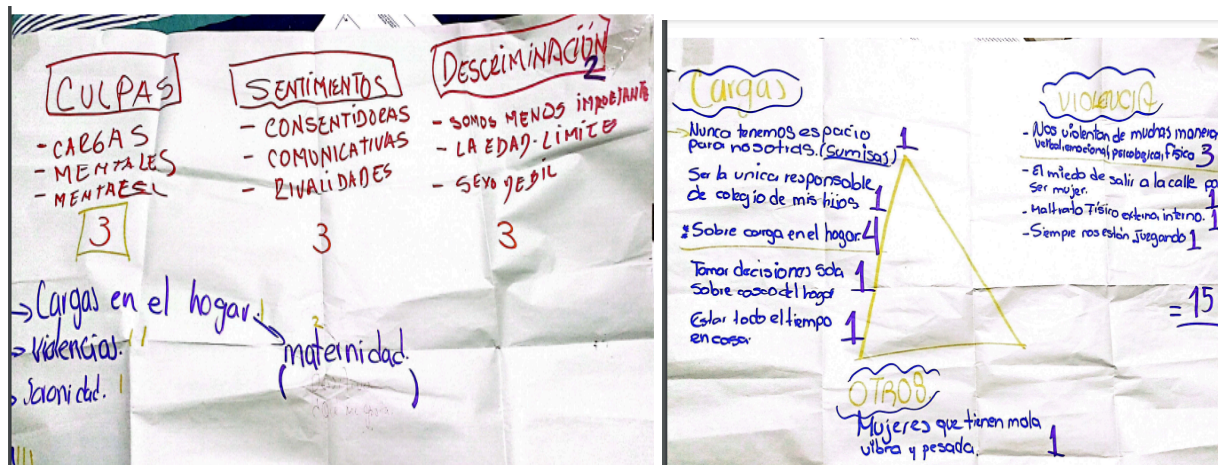 CULPAS
- CARGAS
- MENTALES
3
SENTIMIENTOS
- CONSENTIDORAS
- COMUNICATIVAS
- RIVALIDADES
3
DESCRIMINACIÓN
2
- SOMOS MENOS IMPORTANTE
- LA EDAD-LIMITE
- SEXO DEBIL
3
→ Cargas en el hogar.
→ Violencias.
2
maternidad.
Cargas
Nunca tenemos espacio
para nosotras. (Sumisas) 1
Ser la unica responsable
de colegio de mis hijos 1
* Sobre carga en el hogar. 4
Tomar decisiones sola 1
Sobre casa del hogar
Estar todo el tiempo 1
en casa.
VIOLENCIA
- Nos violentan de muchas manera
verbal, emocional, psicologica, físico 3
- El miedo de salir a la calle po
ser mujer. 1
- Maltrato Físico externa, interno. 1
- Siempre nos están Juzgando 1
= 15
OTROS
Mujeres que tienen mala
vibra y pesada. 1